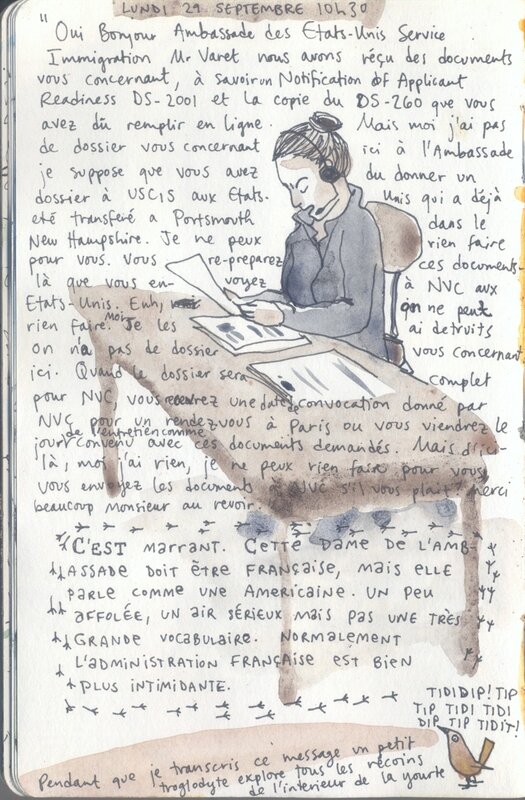 LUNDI 29 SEPTEMBRE 10h30
"Oui Bonjour Ambassade des Etats-Unis Service
Immigration Mr Varet nous avons réçu des documents
vous concernant, à savoir un Notification Of Applicant
Readiness DS-2001 et la copie du DS-260 que vous
avez dû remplir en ligne. Mais moi j'ai pas
de dossier vous concernant ici à l'Ambassade
je suppose que vous avez du donner un
dossier à USCIS aux Etats- Unis qui a déjà
eté transferé a Portsmouth dans le
New Hampshire. Je ne peux rien faire
pour vous. Vous re-preparez ces documents
là que vous en- voyez à NVC aux
Etats-Unis. Euh, on ne peut
rien faire. moi Je les ai detruits
on n'a pas de dossier vous concernant
ici. Quand le dossier sera complet
pour NVC vous recevrez une date de convocation donné par
NVC pour un rendez vous à Paris ou vous viendrez le
jour de l'entretien comme convenu avec ces documents demandés. Mais d'ici-
là, moi j'ai rien, je ne peux rien faire pour vous
vous envoyez les documents à NVC s'il vous plait? merci
beaucoup monsieur au revoir.
C'EST MARRANT. CETTE DAME DE L'AMB-
ASSADE DOIT ÊTRE FRANÇAISE, MAIS ELLE
PARLE COMME UNE AMERICAINE. UN PEU
AFFOLÉE, UN AIR SÉRIEUX MAIS PAS UNE TRÈS
GRANDE VOCABULAIRE. NORMALEMENT
L'ADMINISTRATION FRANÇAISE EST BIEN
PLUS INTIMIDANTE.
TIDIDIP! TIP
TIP TIDI TIDI
DIP TIP TIDIT!
Pendant que je transcris ce message un petit
troglodyte explore tous les récoins
de l'interieur de la yourte